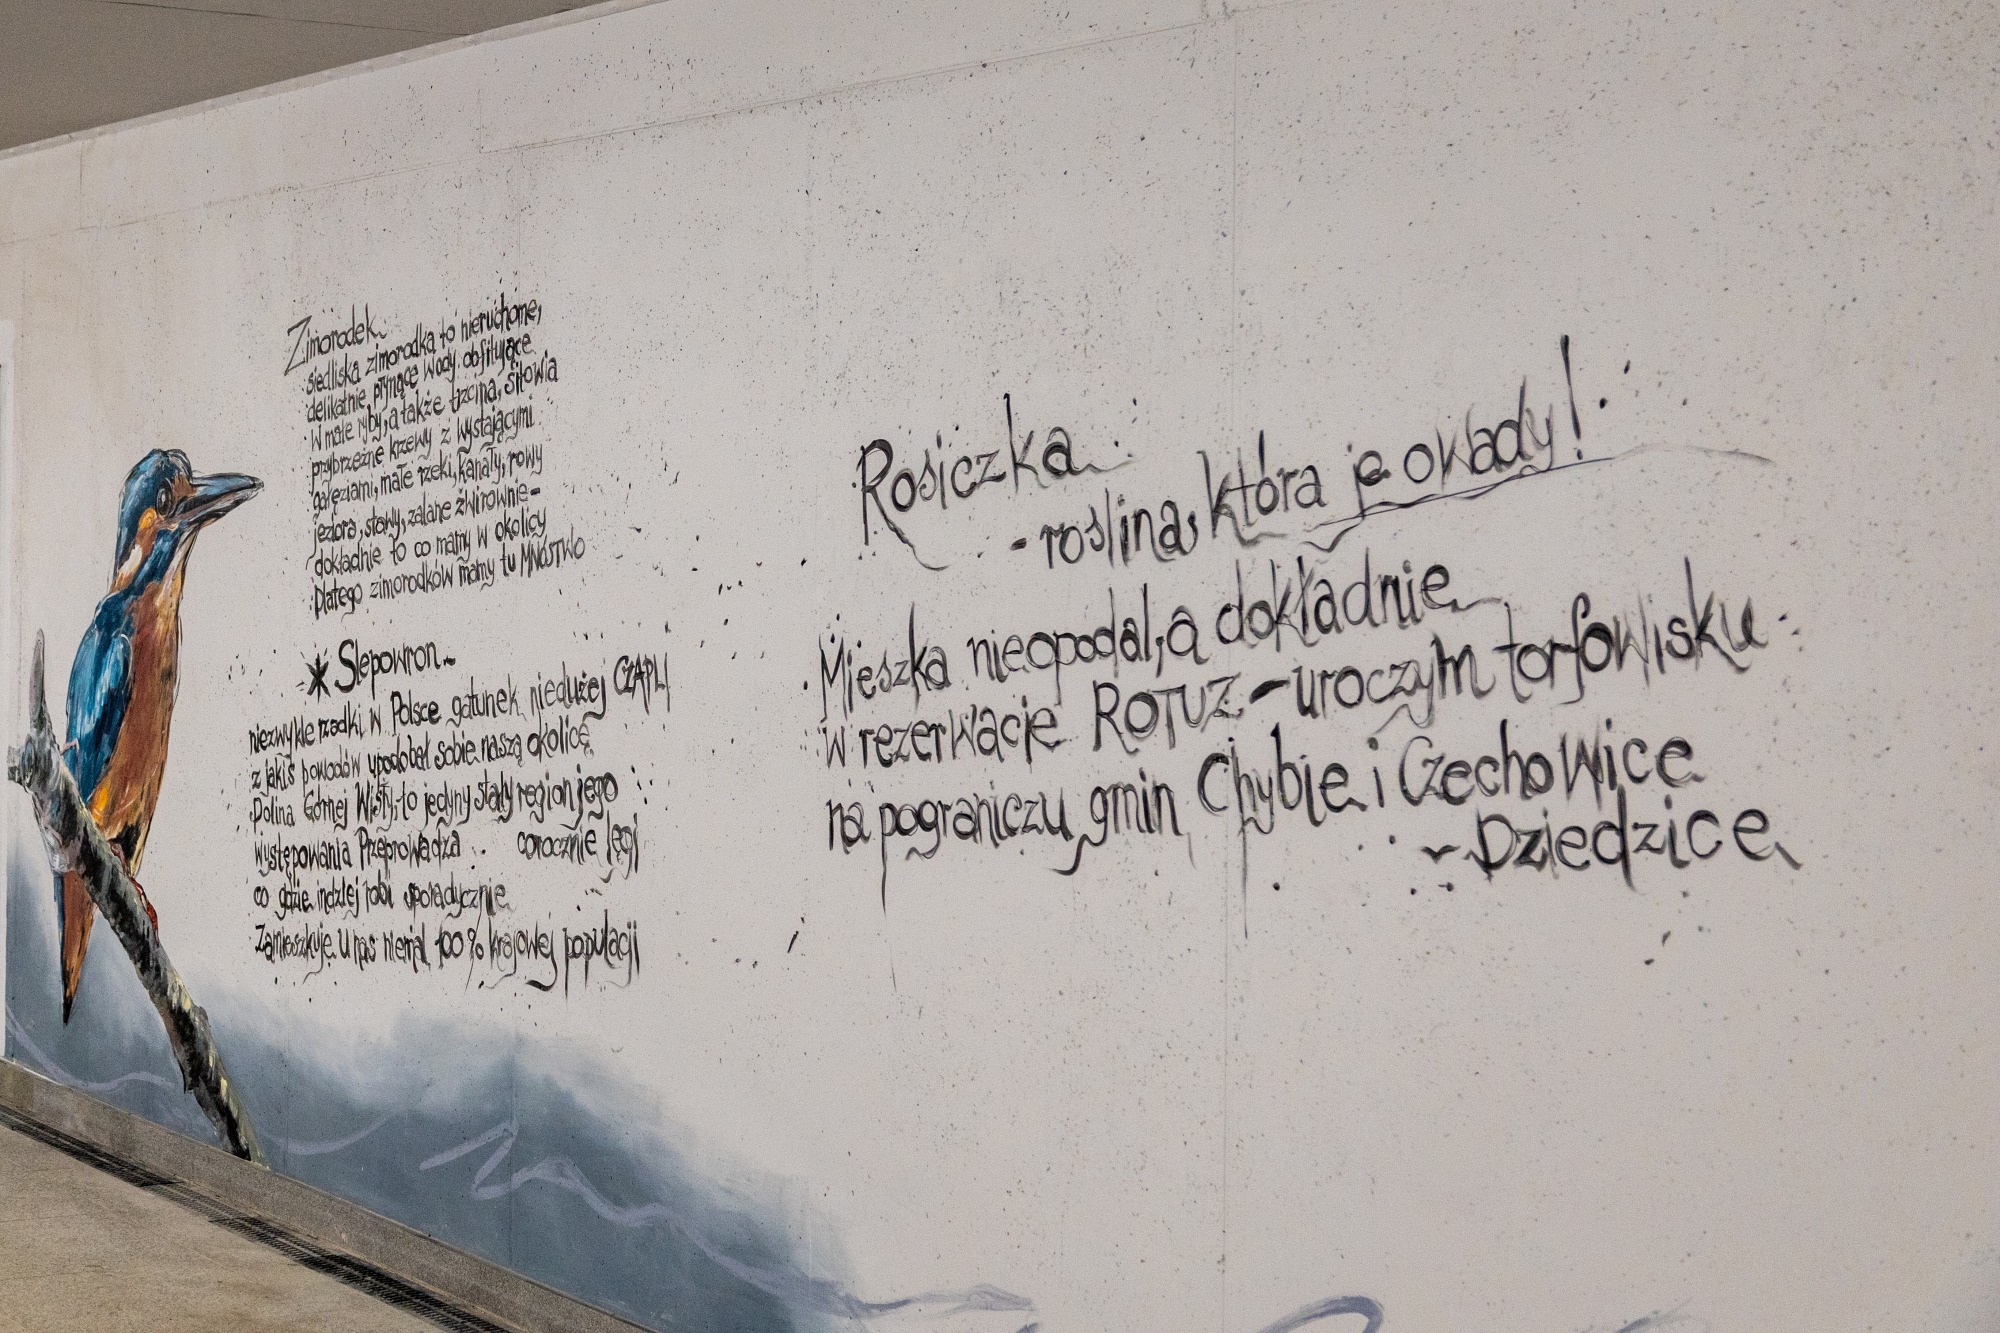 Zimorodek
siedliska zimorodka to nieruchome,
delikatnie płynące wody obfitujące
w małe ryby, a także trzcina, sitowia
przybrzeżne krzewy z wystającymi
gałęziami, małe rzeki, kanały, rowy
jeziora, stawy, zalane żwirownie-
dokładnie to co mamy w okolicy
Dlatego zimorodków mamy tu MNÓSTWO
* Ślepowron~
niezwykle rzadki w Polsce gatunek niedużej CZAPLI
z jakiś powodów upodobał sobie naszą okolicę
Dolina Górnej Wisły, to jedyny stały region jego
występowania Przeprowadza corocznie lęgi
co gdzie indziej robi sporadycznie
Zamieszkuje u nas niemal 100% krajowej populacji
Rosiczka
- roślina, która je owady!
Mieszka nieopodal, a dokładnie
w rezerwacie ROTUZ - uroczym torfowisku
na pograniczu gmin Chybie i Czechowice
- Dziedzice